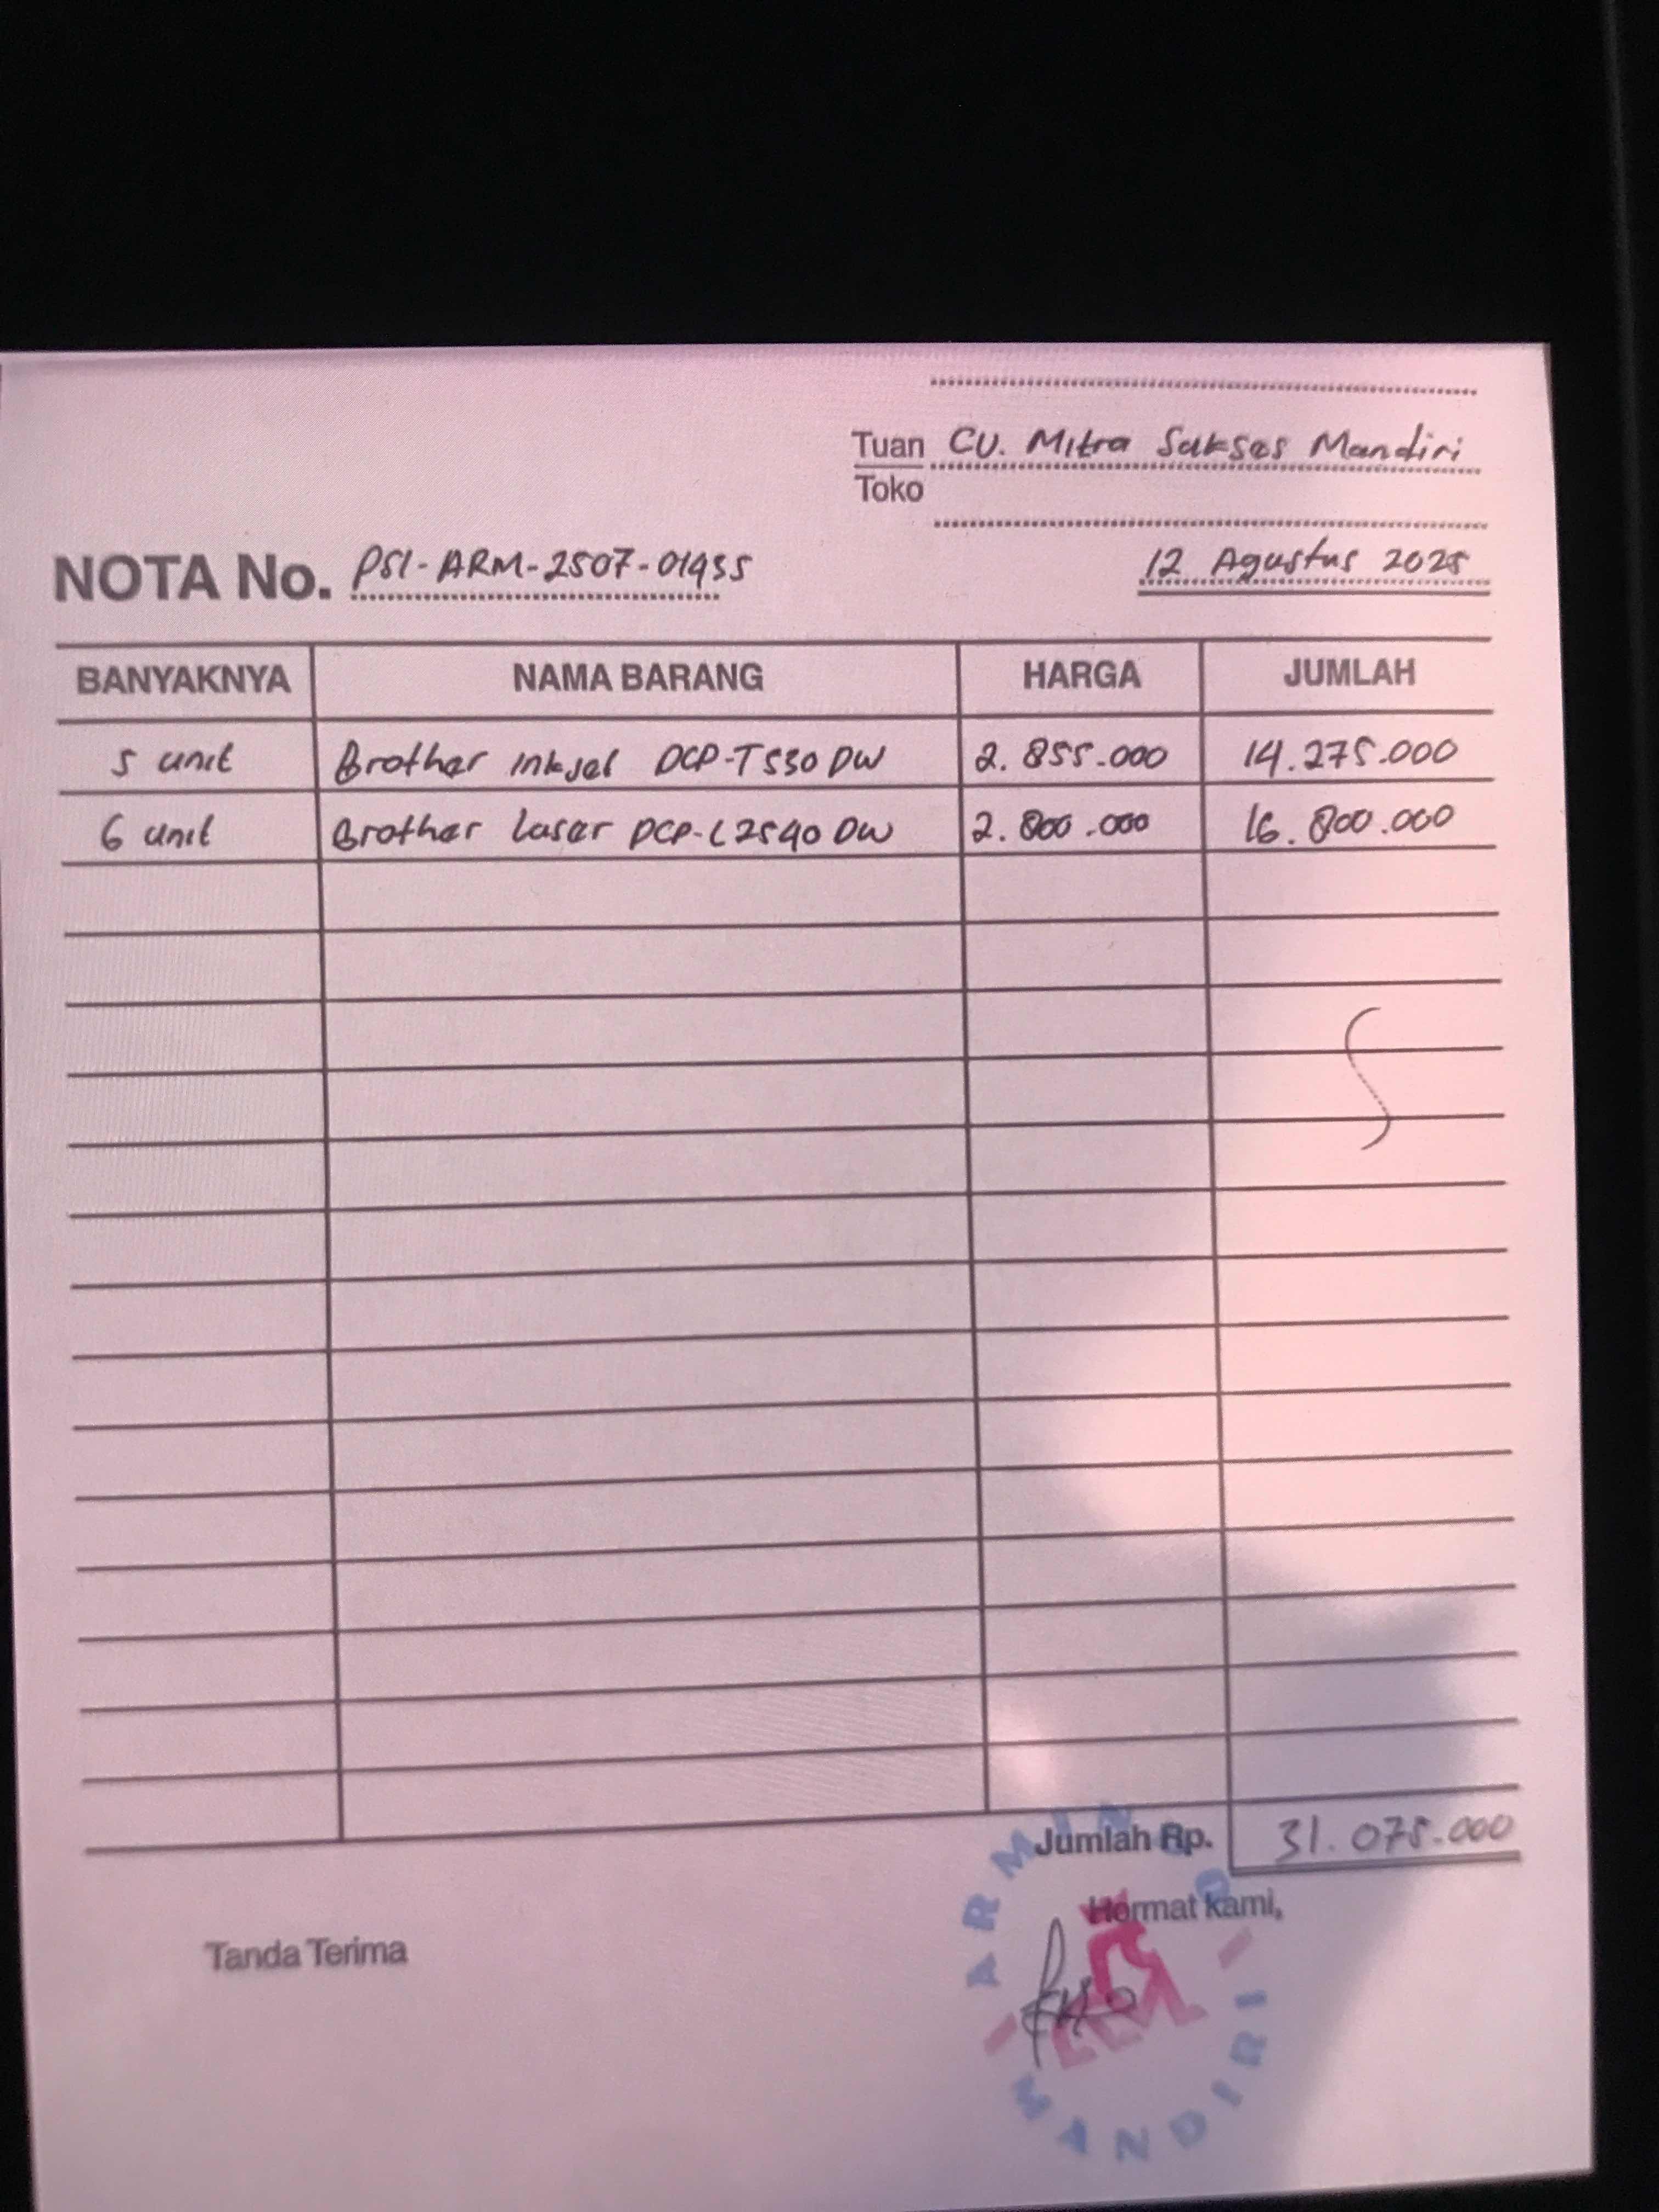 Tuan CV. Mitra Sukses Mandiri
Toko
NOTA No. PSI-ARM-2507-01955
12 Agustus 2025
BANYAKNYA NAMA BARANG HARGA JUMLAH
5 unit Brother inkjet DCP-T530 DW 2.855.000 14.275.000
6 unit Brother laser DCP-L2540 DW 2.800.000 16.800.000
Jumlah Rp. 31.075.000
Tanda Terima
Hormat kami,
ARMINDO
MANDIRI